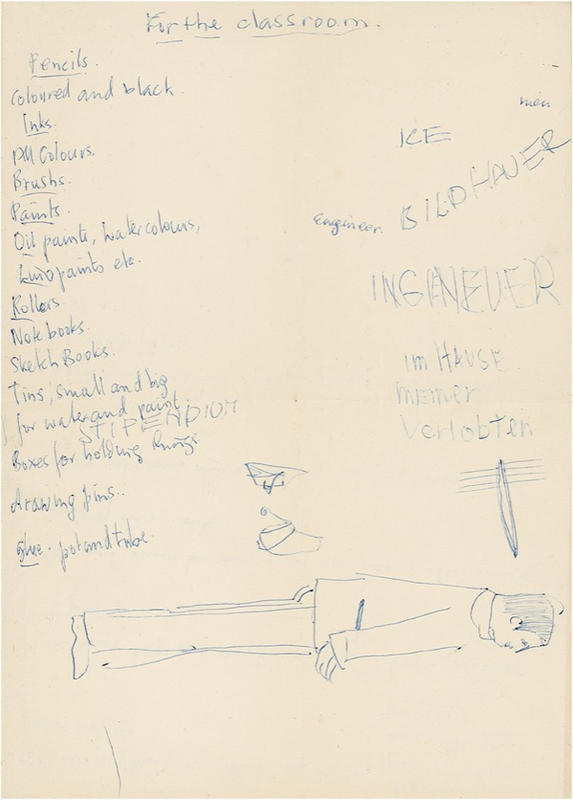 For the classroom.
Pencils.
Coloured and black.
Inks.
PM Colours.
Brushs.
Paints.
Oil paints, Watercolours,
Lino paints etc.
Rollers.
Note books.
Sketch Books.
Tins, small and big
for water and paint.
STIPENDIUM
Boxes for holding things.
drawing pins.
glue. pot and tube.
ICE
engineer.
BILDHAUER
INGENEUER
im HAUSE
meiner
Verlobten